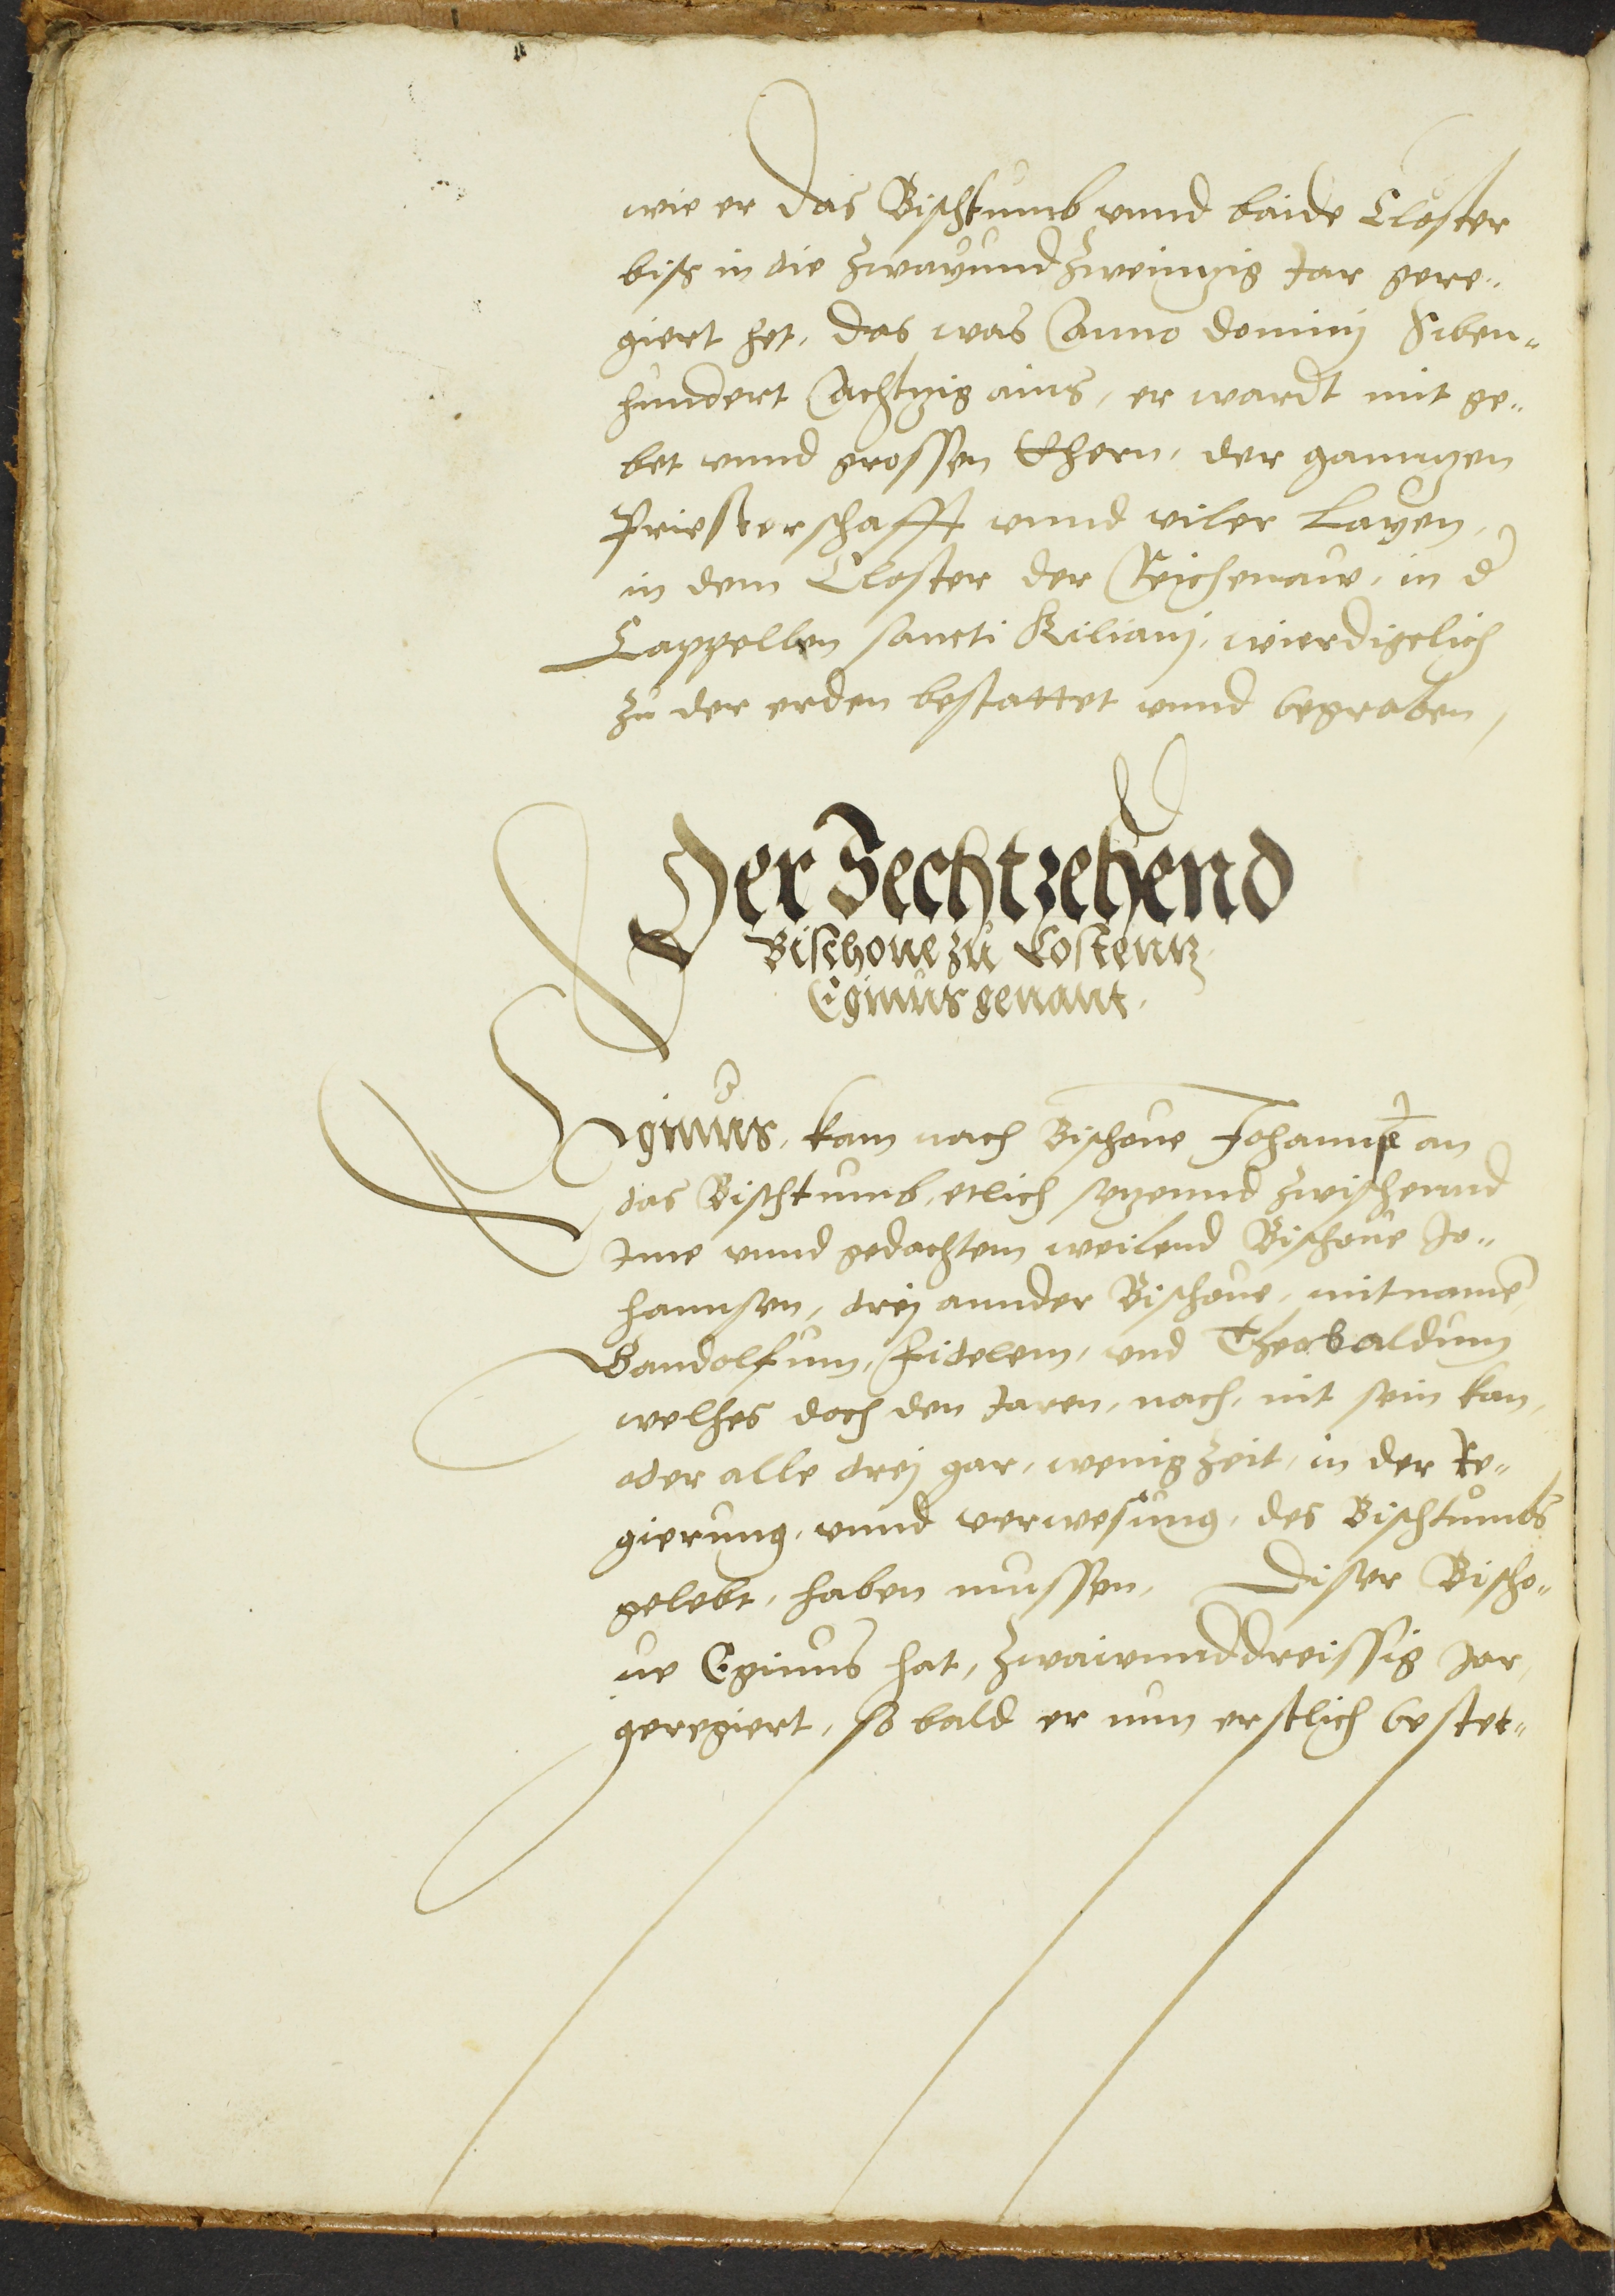 wie er das Bischtumb vnnd baide Closter
biss in die zwayundzweintzig Jar gere„
giert het, das was Anno dominj Siben„
hundert Achtzig ains, er wardt mit ge„
bet vnnd grossen Ehern, der ganntzen
Priesterschafft vnnd viler Layen,
in dem Closter der Reichenaw, in d
Cappellen sancti Kilianj, wierdigclich
zu der erden bestattet vnnd begraben,
Der Sechtzehend
Bischoue zu Costentz
Eginus genant.
Eginus, kam nach Bischoue Johannsen an
das Bischtumb, etlich setzennd zwischennd
Jme vnnd gedachtem weilend Bischoue Jo„
hannsen, drej annder Bischoue, mitname
Gandolfum, Fidelem, vnd Theobaldum
welhes doch den Jaren, nach, nit sein kan,
oder alle drej gar, wenig Zeit, in der Re„
gierung, vnnd verwesung, des Bischtumbs
gelebt, haben mussen, Diser Bischo„
ue Eginus hat, zwaiunnddreissig Jar,
geregiert, so bald er nun erstlich bestet„